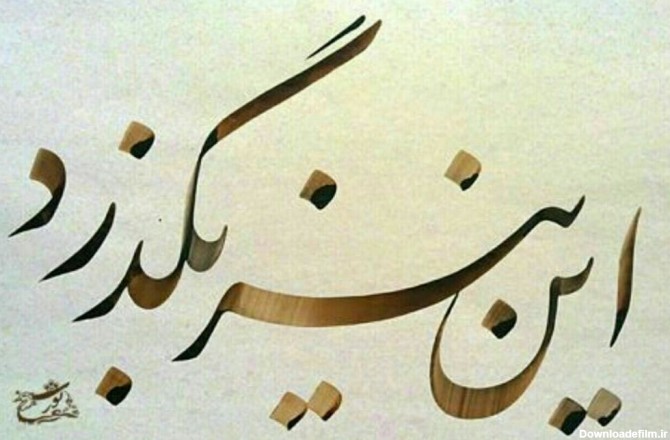 این نیز بگذرد
Downloadefilm.ir